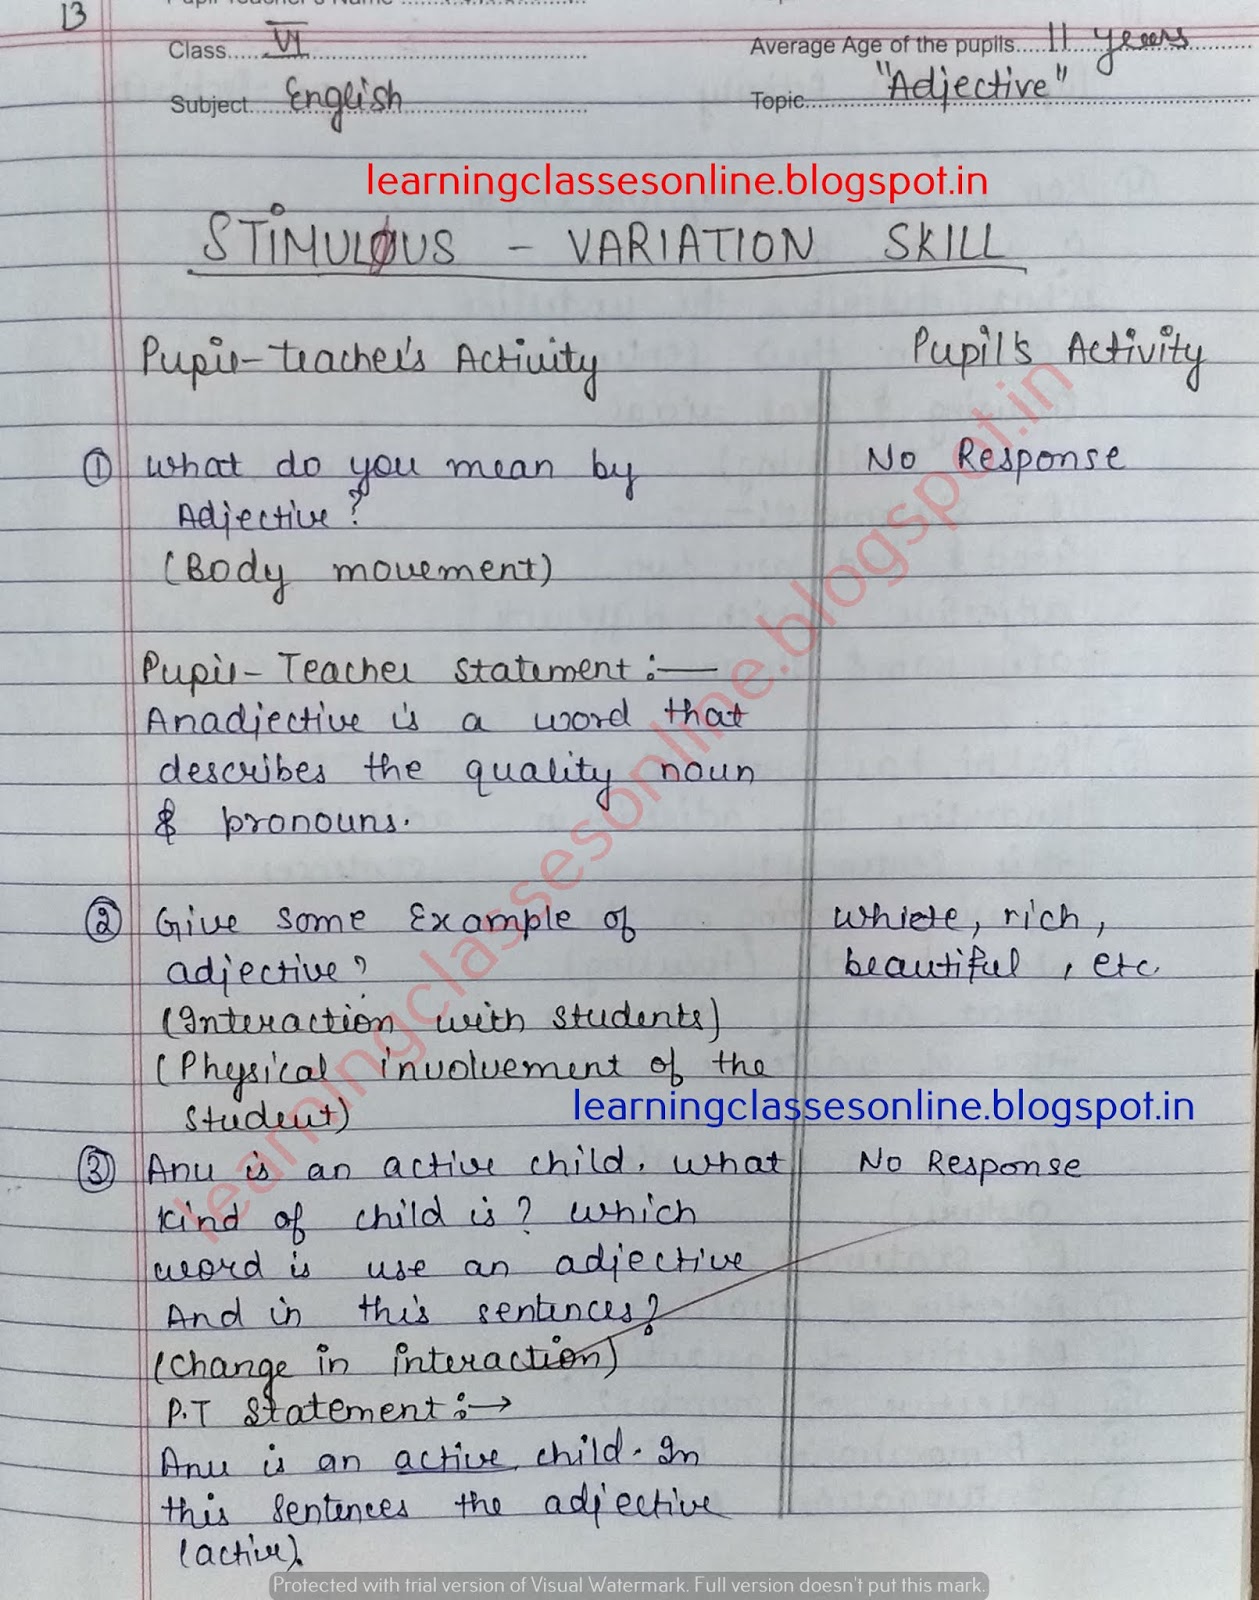 13
Pupil Teacher's Name
Class..... VI
Average Age of the pupils.... 11 years
Subject.... English
Topic.... "Adjective"
learningclassesonline.blogspot.in
STIMULUS - VARIATION SKILL
Pupil-teacher's Activity
Pupil's Activity
① What do you mean by
Adjective?
(Body movement)
No Response
Pupil-Teacher statement :—
Anadjective is a word that
describes the quality noun
& pronouns.
② Give some Example of
adjective?
(Interaction with students)
(Physical involvement of the
student)
whiete, rich,
beautiful, etc.
learningclassesonline.blogspot.in
③ Anu is an active child. what
kind of child is? which
word is use an adjective
And in this sentences?
(change in interaction)
No Response
P.T Statement :→
Anu is an active child. In
this sentences the adjective
(active).
learningclassesonline.blogspot.in
Protected with trial version of Visual Watermark. Full version doesn't put this mark.